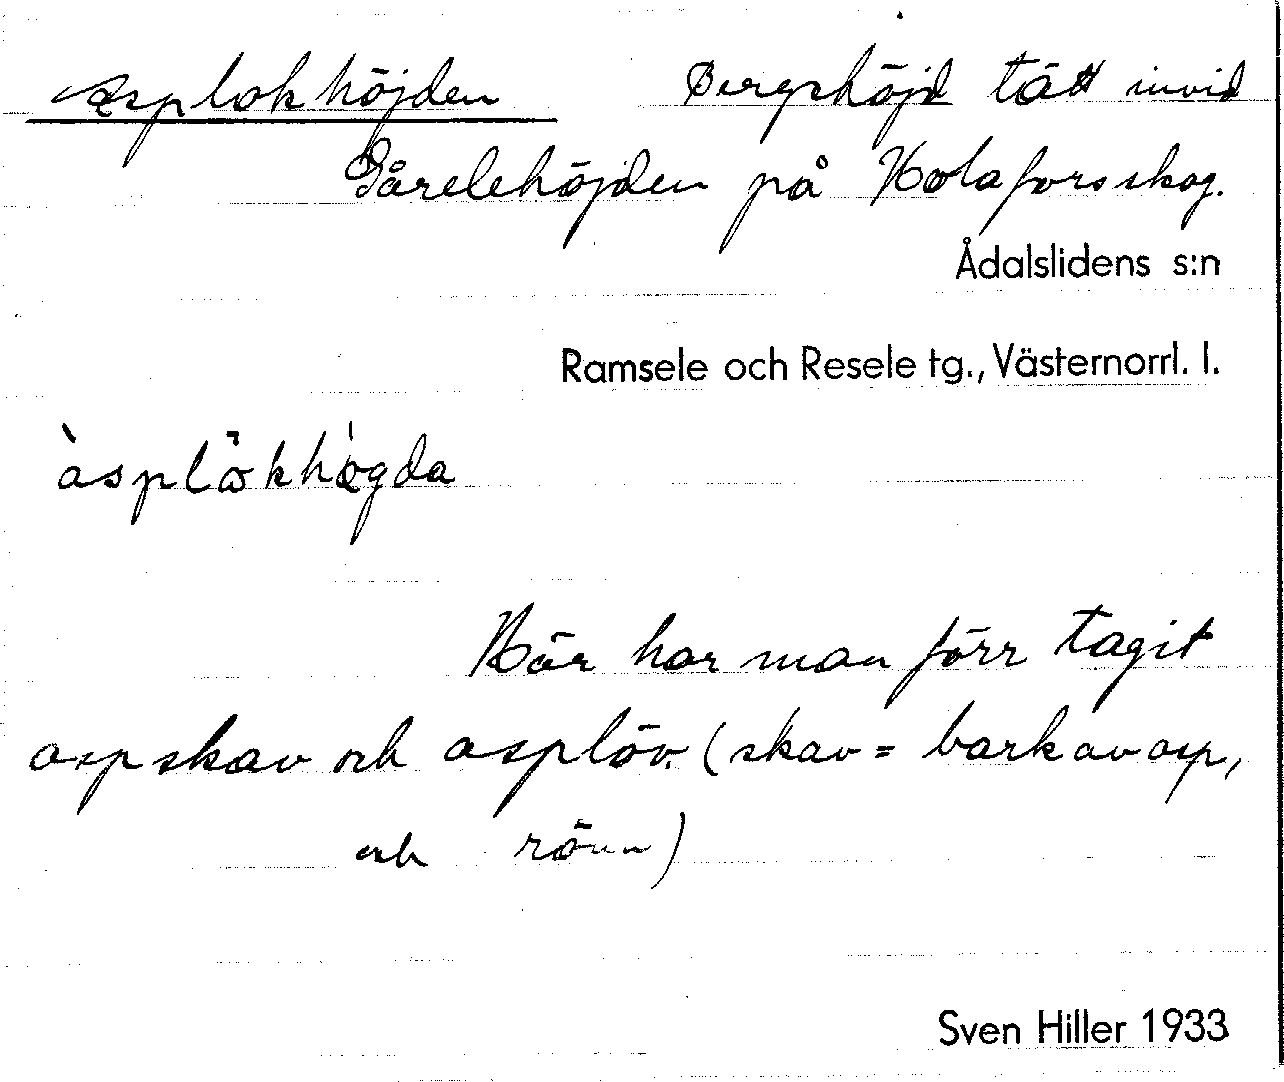 Asplokhöjden Bergshöjd tätt invid
Gårelehöjden på Holaforsskog.
Ådalslidens s:n
Ramsele och Resele tg., Västernorrl. l.
àsplökhögda
Här har man förr tagit
aspskav och asplöv. (skav = bark av asp,
och rönn)
Sven Hiller 1933